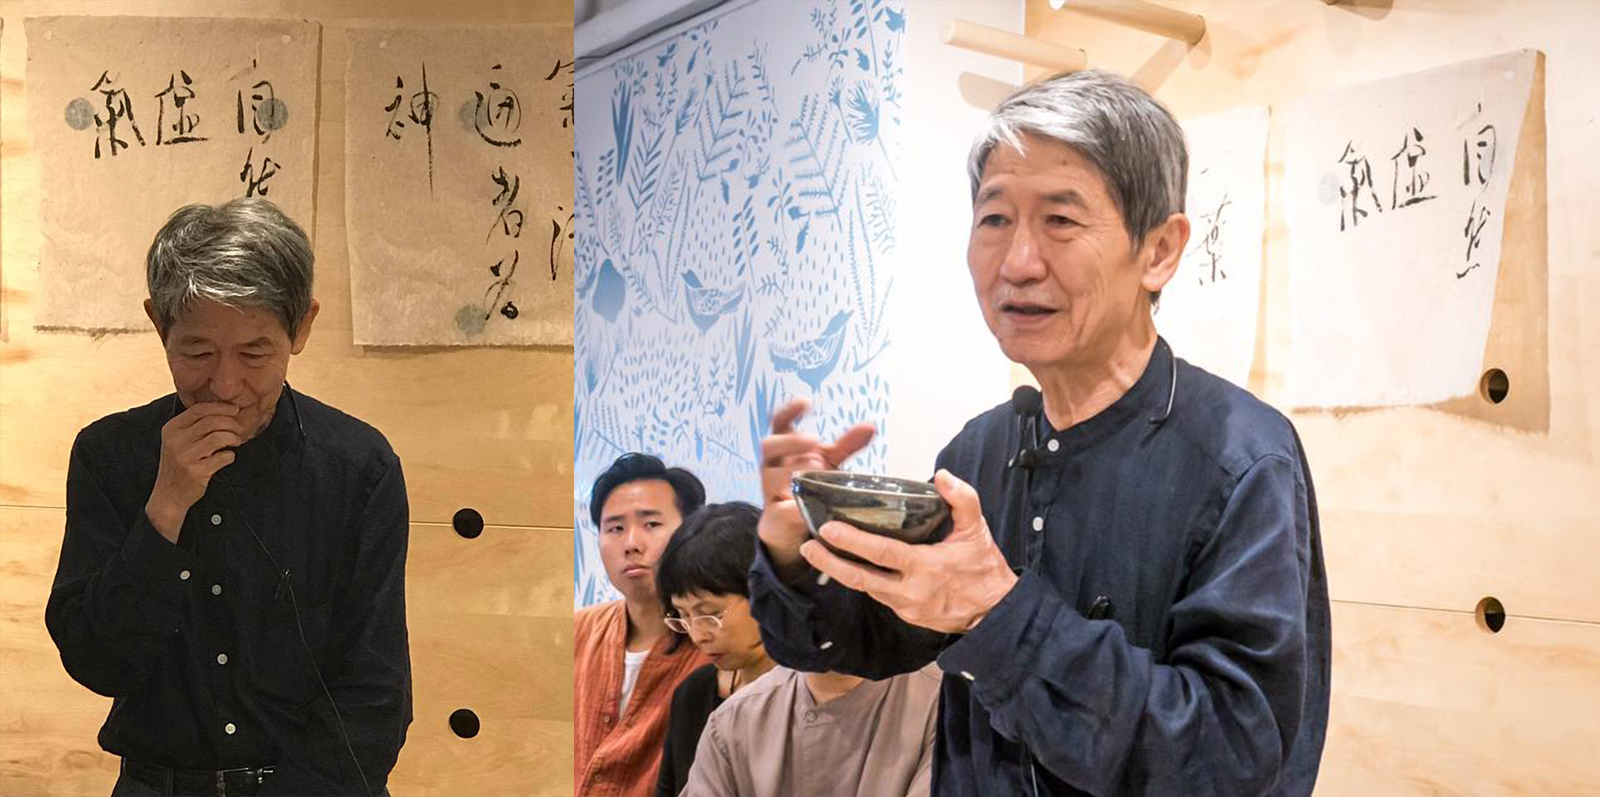 自然
虛
氣
者若
神
葉
自然
虛
氣